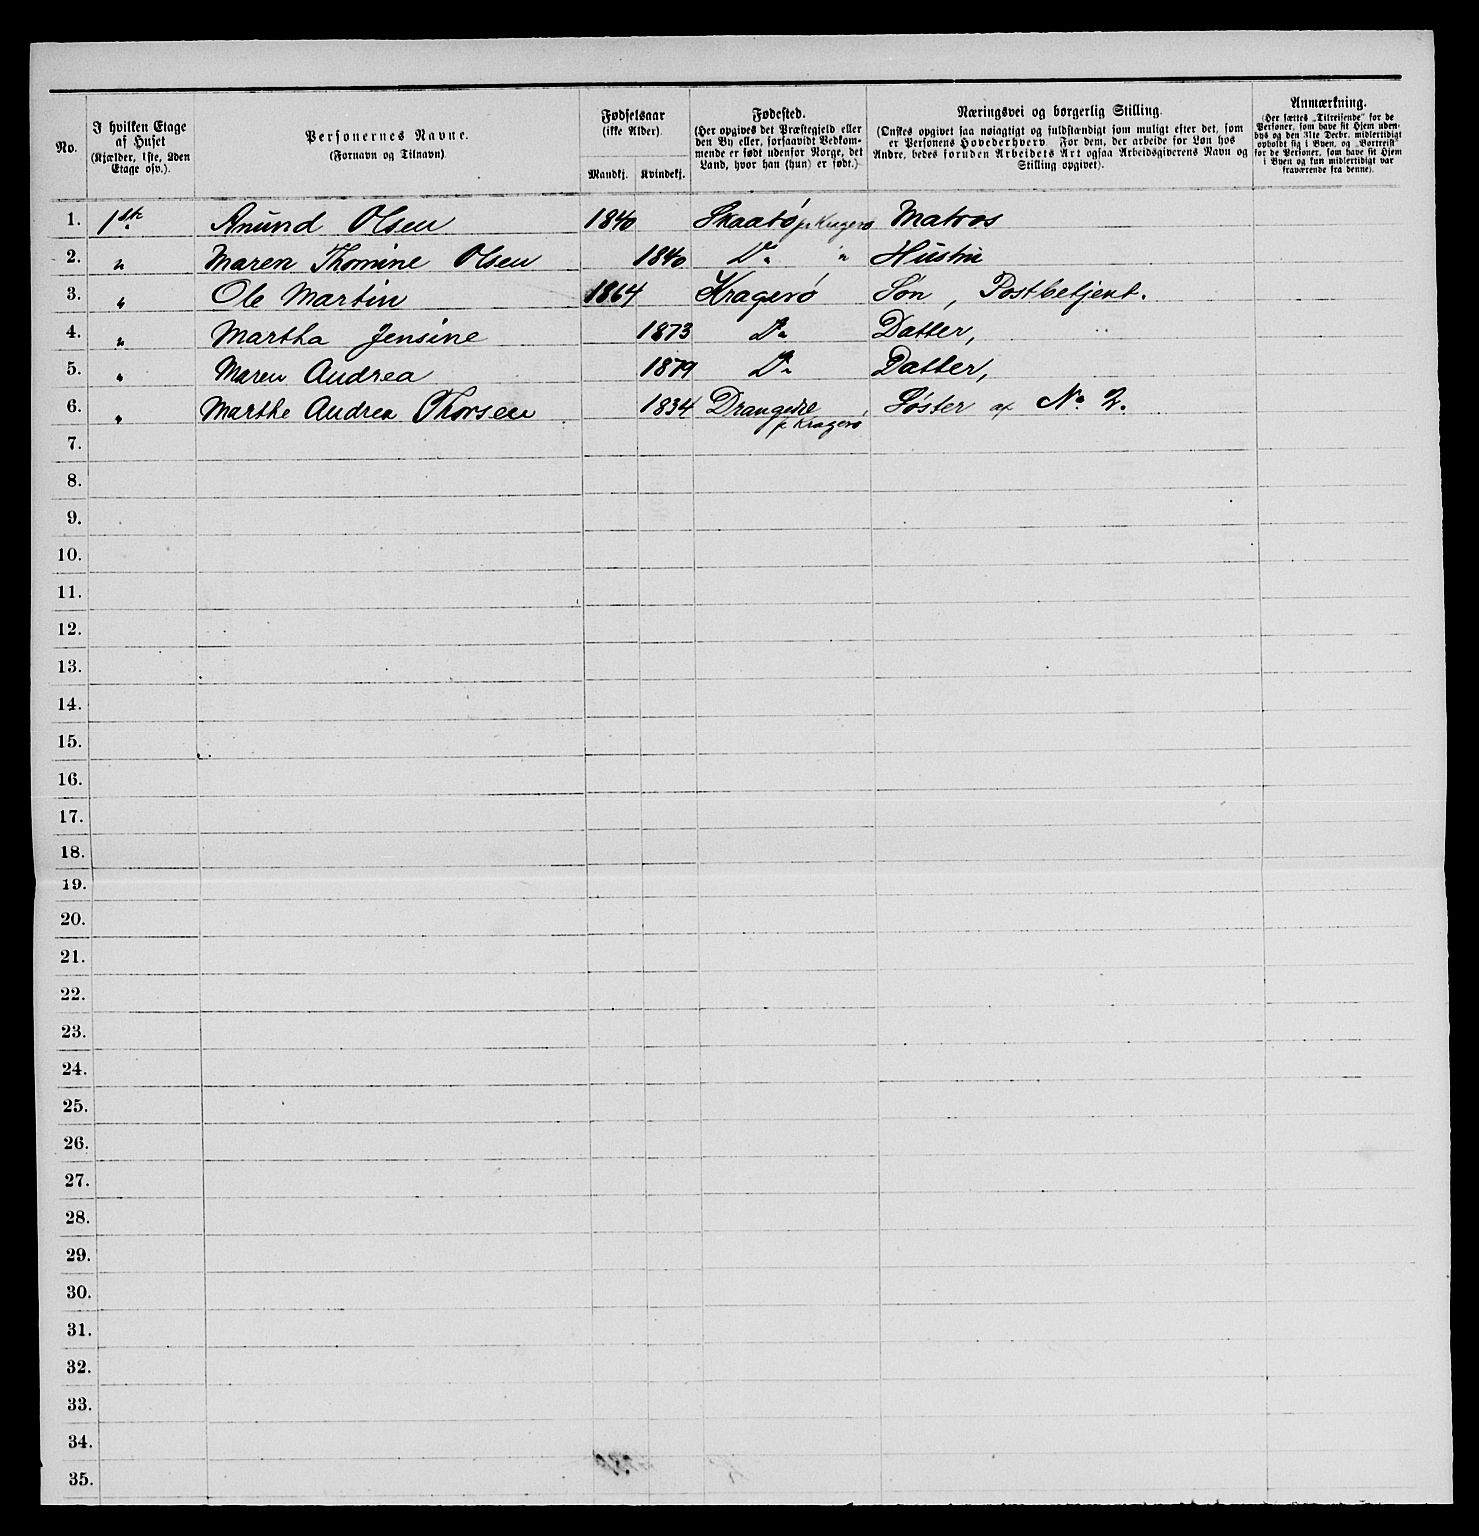 No.
I hvilken Etage
af Huset
(Kjælder, 1ste, 2den
Etage osv.).
Personernes Navne.
(Fornavn og Tilnavn)
Fødselsaar
(ikke Alder).
Mandkj. Kvindekj.
Fødested.
(Her opgives det Præstegjeld eller
den By eller, forsaavidt Vedkom-
mende er født udenfor Norge, det
Land, hvor han (hun) er født.)
Næringsvei og borgerlig Stilling.
(Ønskes opgivet saa nøiagtigt og fuldstændigt som muligt efter det, som
er Personens Hovederhverv. For dem, der arbeide for Løn hos
Andre, bedes foruden Arbeidets Art ogsaa Arbeidsgiverens Navn og
Stilling opgivet).
Anmærkning.
(Her sættes „Tilreisende“ for de
Personer, som have sit Hjem uden-
bys og den 31te Decbr. midlertidigt
opholdt sig i Byen, og „Bortreist“
for de Personer, som have sit Hjem
i Byen og kun midlertidigt var
fraværende fra denne).
1. 1ste Anund Olsen 1840 Skaatø p. Kragerø Matros
2. " Maren Thomine Olsen 1840 Do " Hustru
3. " Ole Martin 1864 Kragerø Søn, Postbetjent.
4. " Martha Jensine 1873 Do Datter,
5. " Maren Andrea 1879 Do Datter,
6. " Marthe Andrea Thorsen 1834 Drangedal Søster af No 2.
p Kragerø
7.
8.
9.
10.
11.
12.
13.
14.
15.
16.
17.
18.
19.
20.
21.
22.
23.
24.
25.
26.
27.
28.
29.
30.
31.
32.
33.
34.
35.